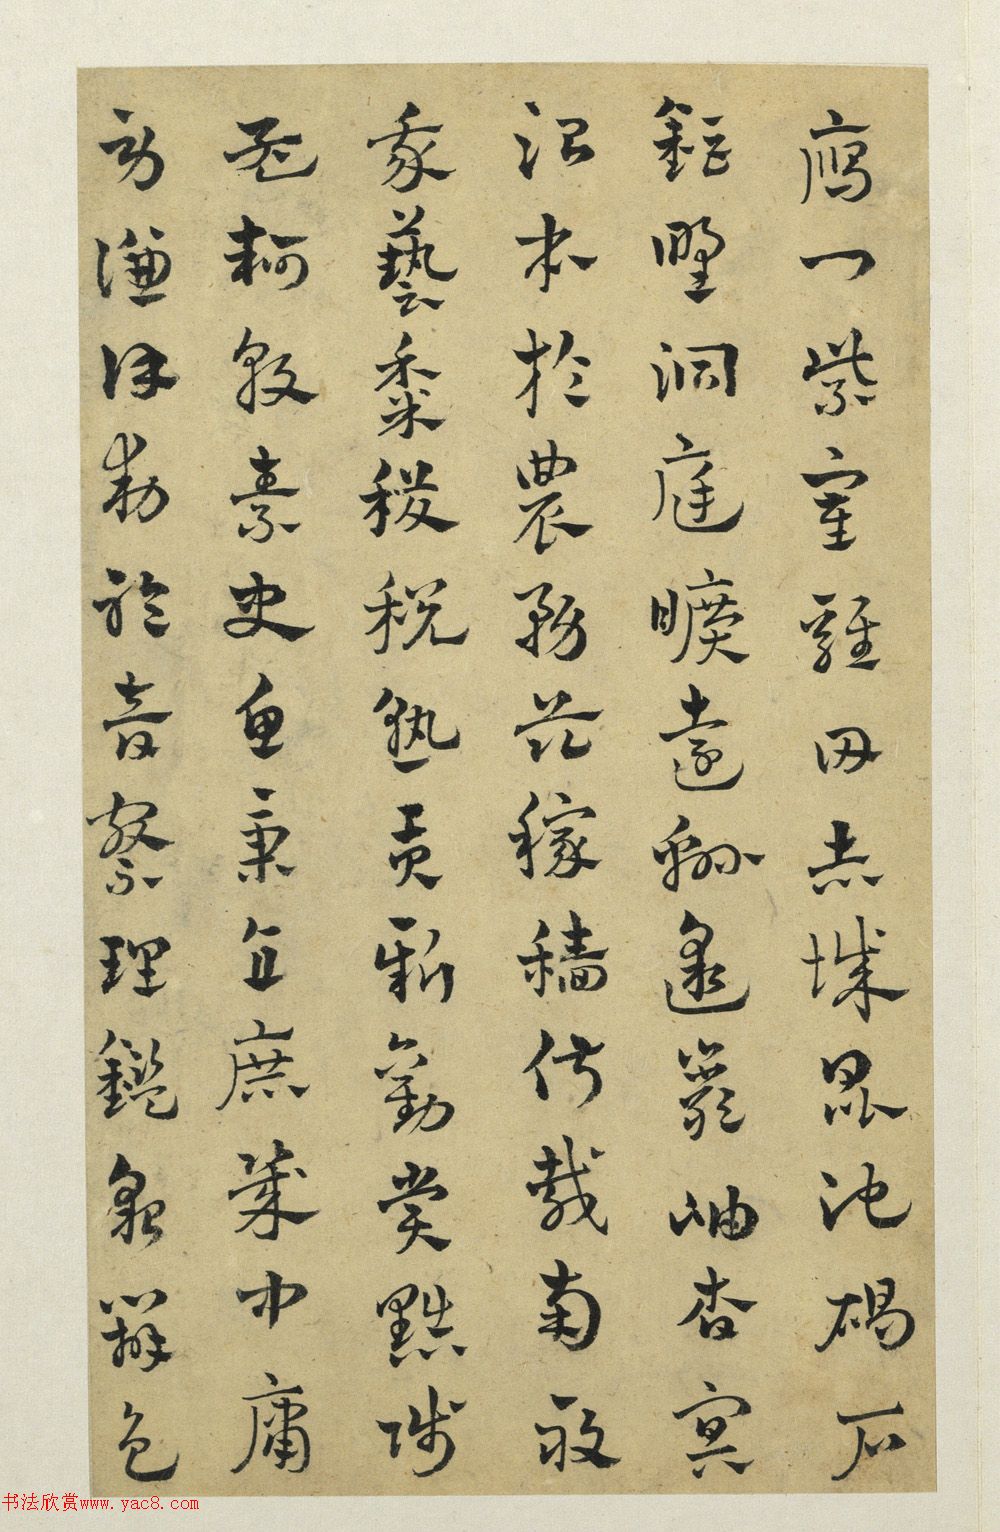 鴈門紫塞雞田赤城昆池碣石
鉅野洞庭曠遠緜邈巖岫杳冥
治本於農務茲稼穡俶載南畝
我藝黍稷稅熟貢新勸賞黜陟
孟軻敦素史魚秉直庶幾中庸
勞謙謹勅聆音察理鑑貌辨色
书法欣赏www.yac8.com